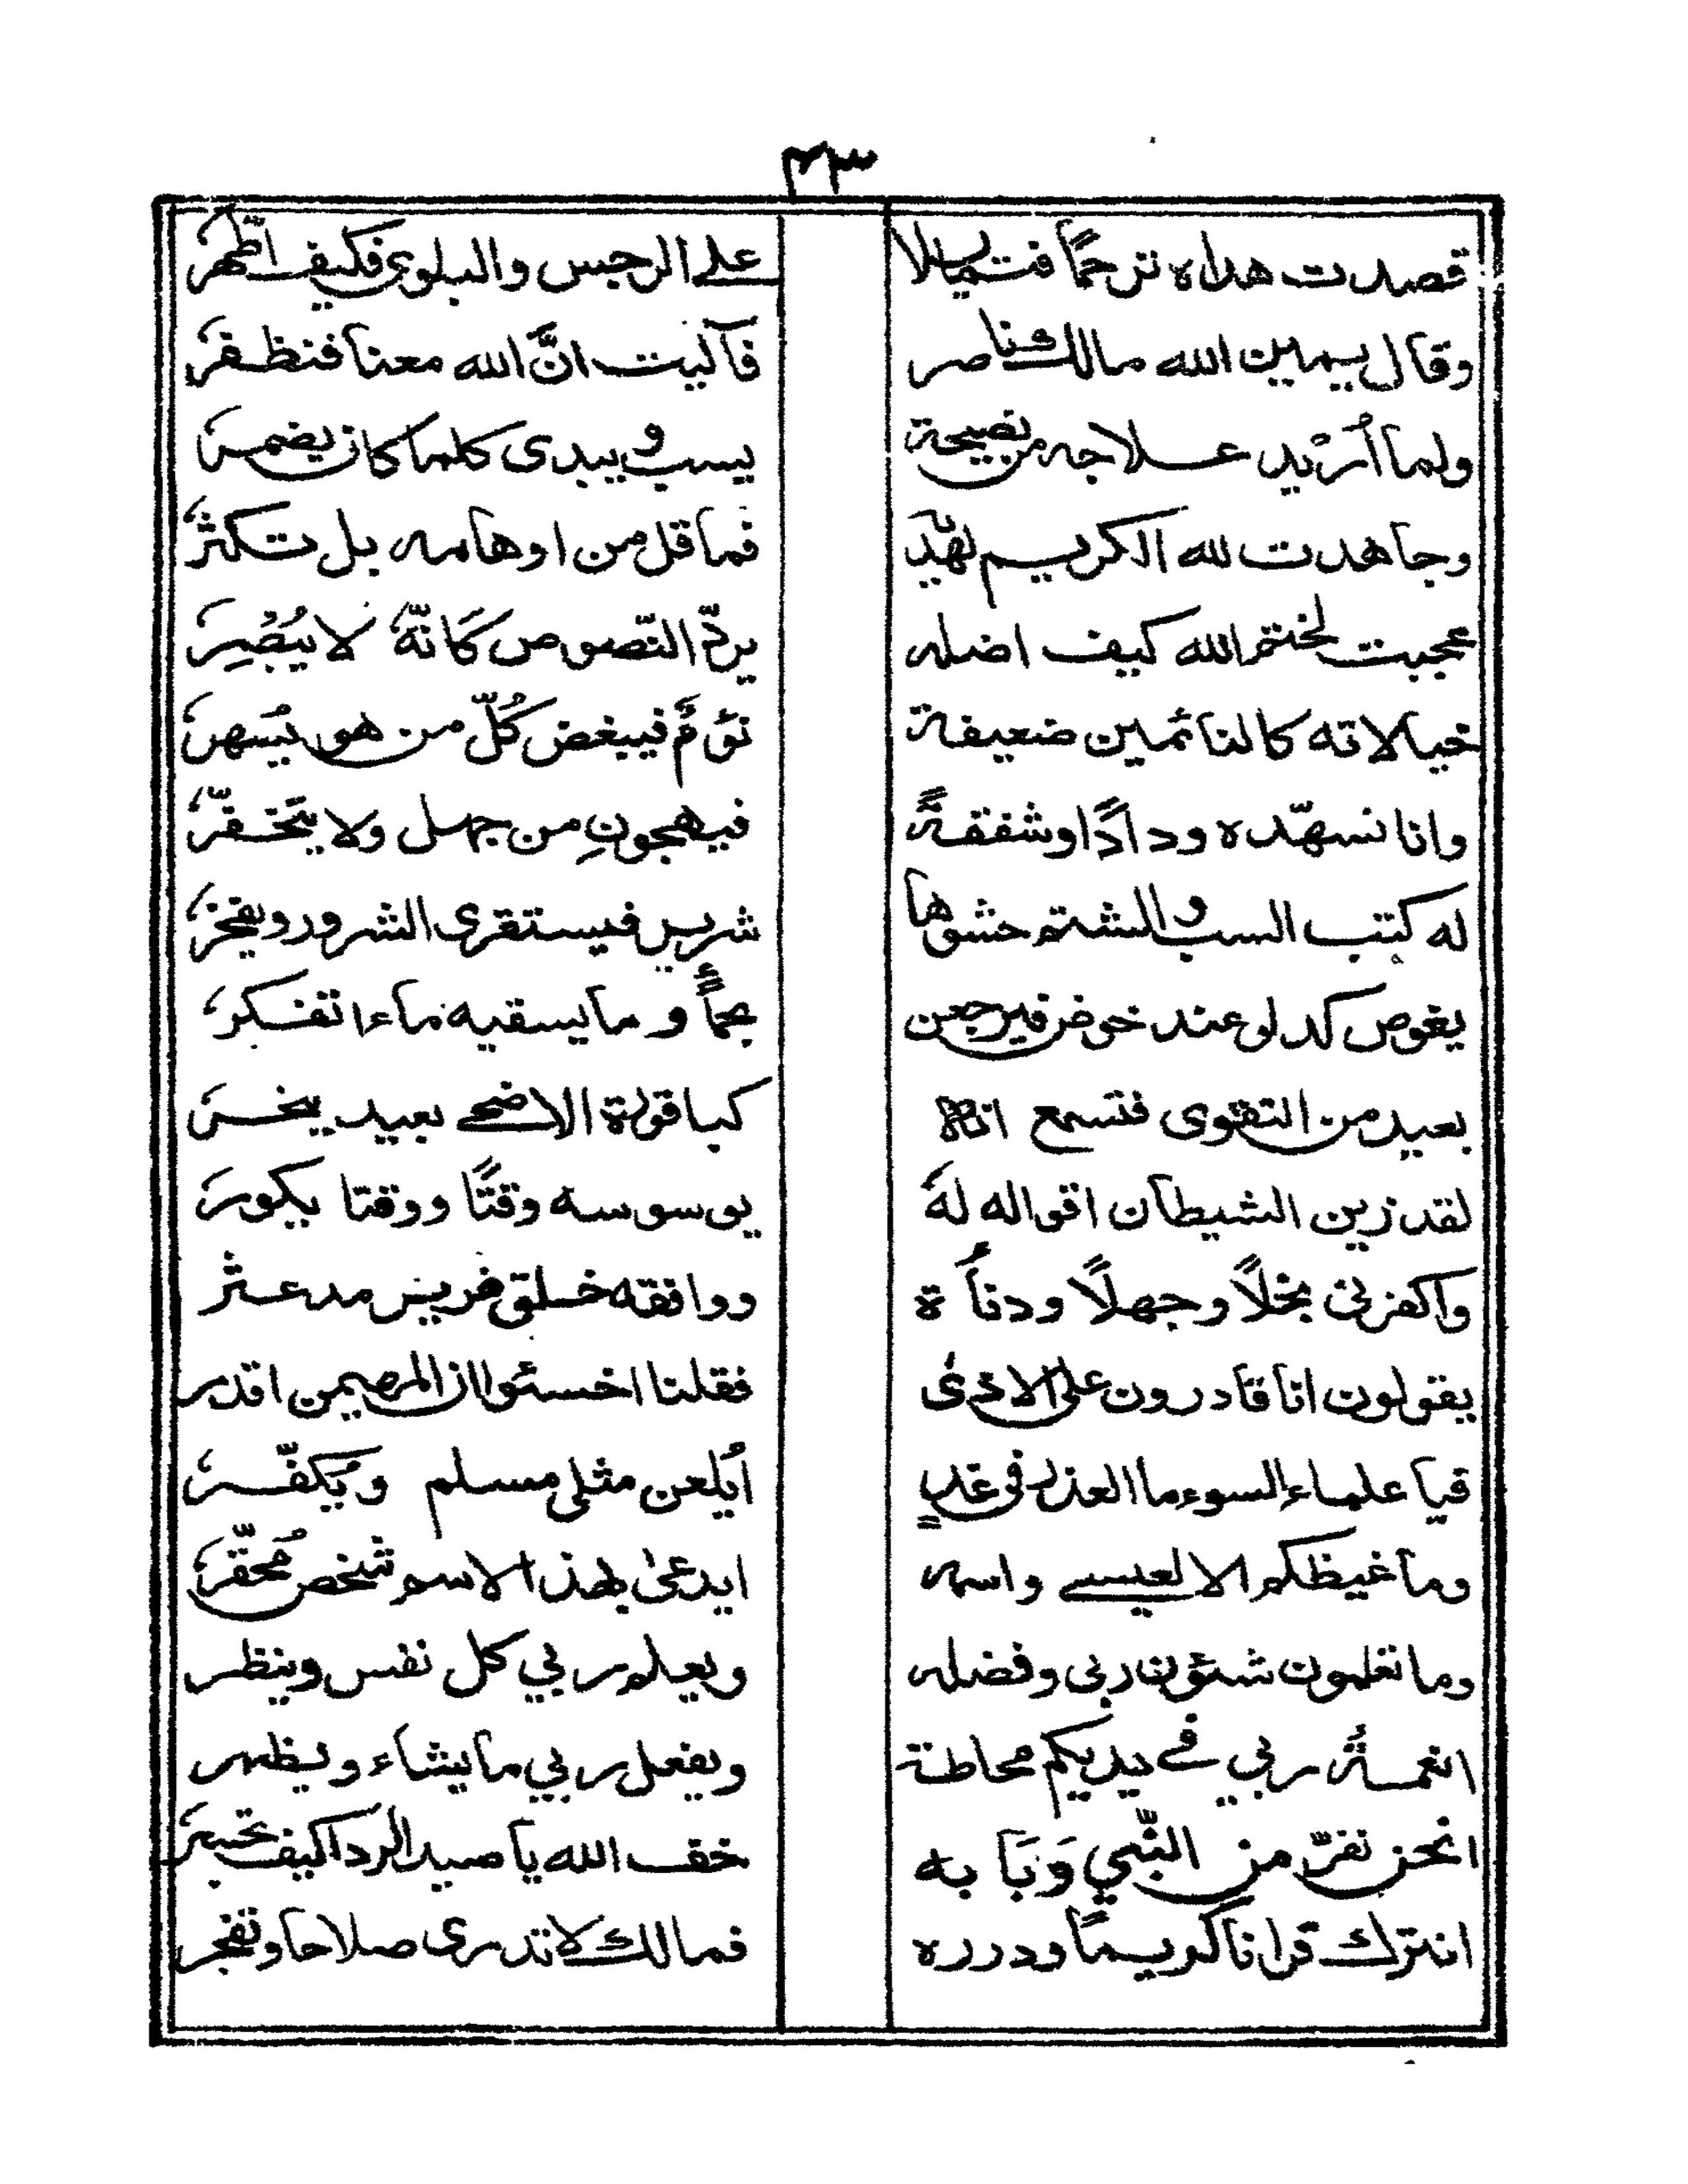 ٤٣
قصدت هداه ترحمًا فتمايلا على الرجس والبلوى فكيف اطهّر
وقال يمين الله مالك ناصر فآليت انَّ الله معنا فنظفر
ولما أُرْيد علاجه من نصيحة يسب ويبدى كلما كان يضمر
وجاهدت لله الكريم لهديه فما قل من اوهامه بل تكثر
عجبت لختم الله كيف اضله يردّ النّصوص كانّه لا يُبْصِر
خيالاته كالنائمين ضعيفة نؤمٌ فيبغض كُلّ من هو يُسهر
وانا نسهّده ودادًا وشفقةً فيهجونِ من جهل ولا يتخفّر
له كتب السب والشتم حشوها شرير فيستقرى الشرور ويفخر
يغوص كدلو عند خوض فيرجعن بحمأٍ وما يسقيه ماء التفكر
بعيد من التقوى فتسمع انه كباقورة الاضحى بعيد ينحر
لقد زين الشيطان اقواله لهٗ يوسوسه وقتًا ووقتا يكور
واكفرنى بخلًا وجهلًا ودناءة ووافقه خلق ضرير مدعثر
يقولون انا قادرون على الاذى فقلنا اخسئوا ان المهيمن اقدر
فيا علماء السوء ما العذر فى غدٍ ايُلعن مثلى مسلم ويُكفّر
وما غيظكم الا لعيسى واسمه ايدعى بهذا الاسم شخص مُحقّر
وما تعلمون شئون ربى وفضله ويعلم ربي كل نفس وينظر
انعمةُ ربي في يديكم محاطة ويفعل ربي ما يشاء ويظهر
انحن نفرّ من النّبي وَبَابه خف الله يا صيد الردا كيف تجسر
انترك قرانًا كريمًا ودرره فمالك لا تدرى صلاحا وتفجر